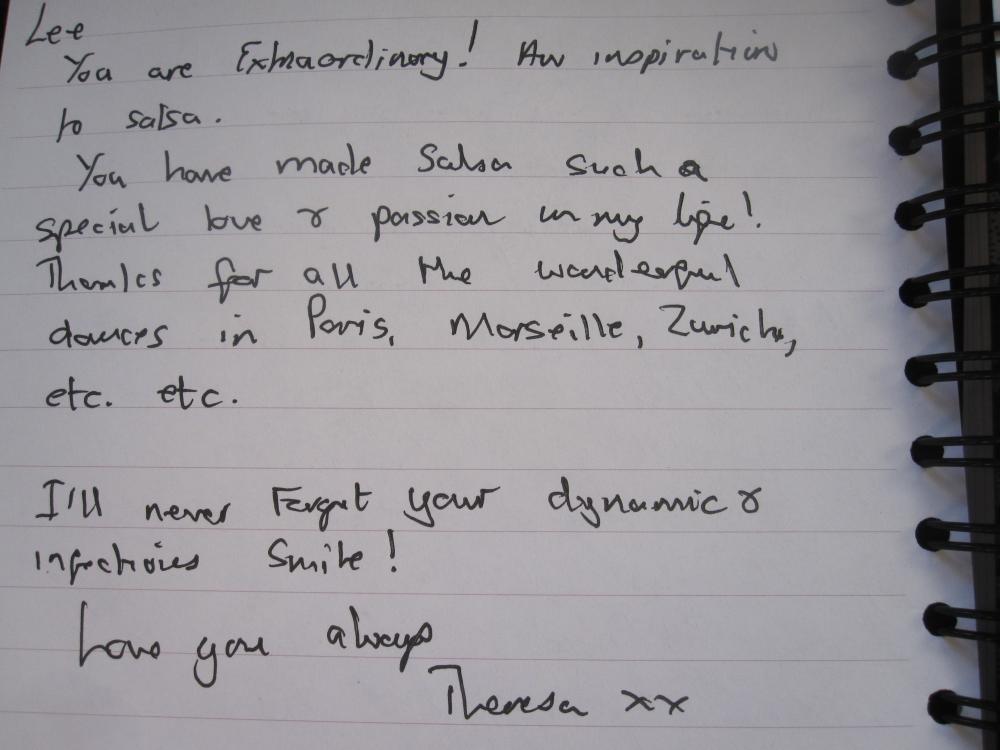 Lee
You are Extraordinary! An inspiration
to salsa.
You have made Salsa such a
special love & passion in my life!
Thanks for all the wonderful
dances in Paris, Marseille, Zurich,
etc. etc.
I'll never Forget your dynamic &
infectious Smile!
Love you always
Theresa xx